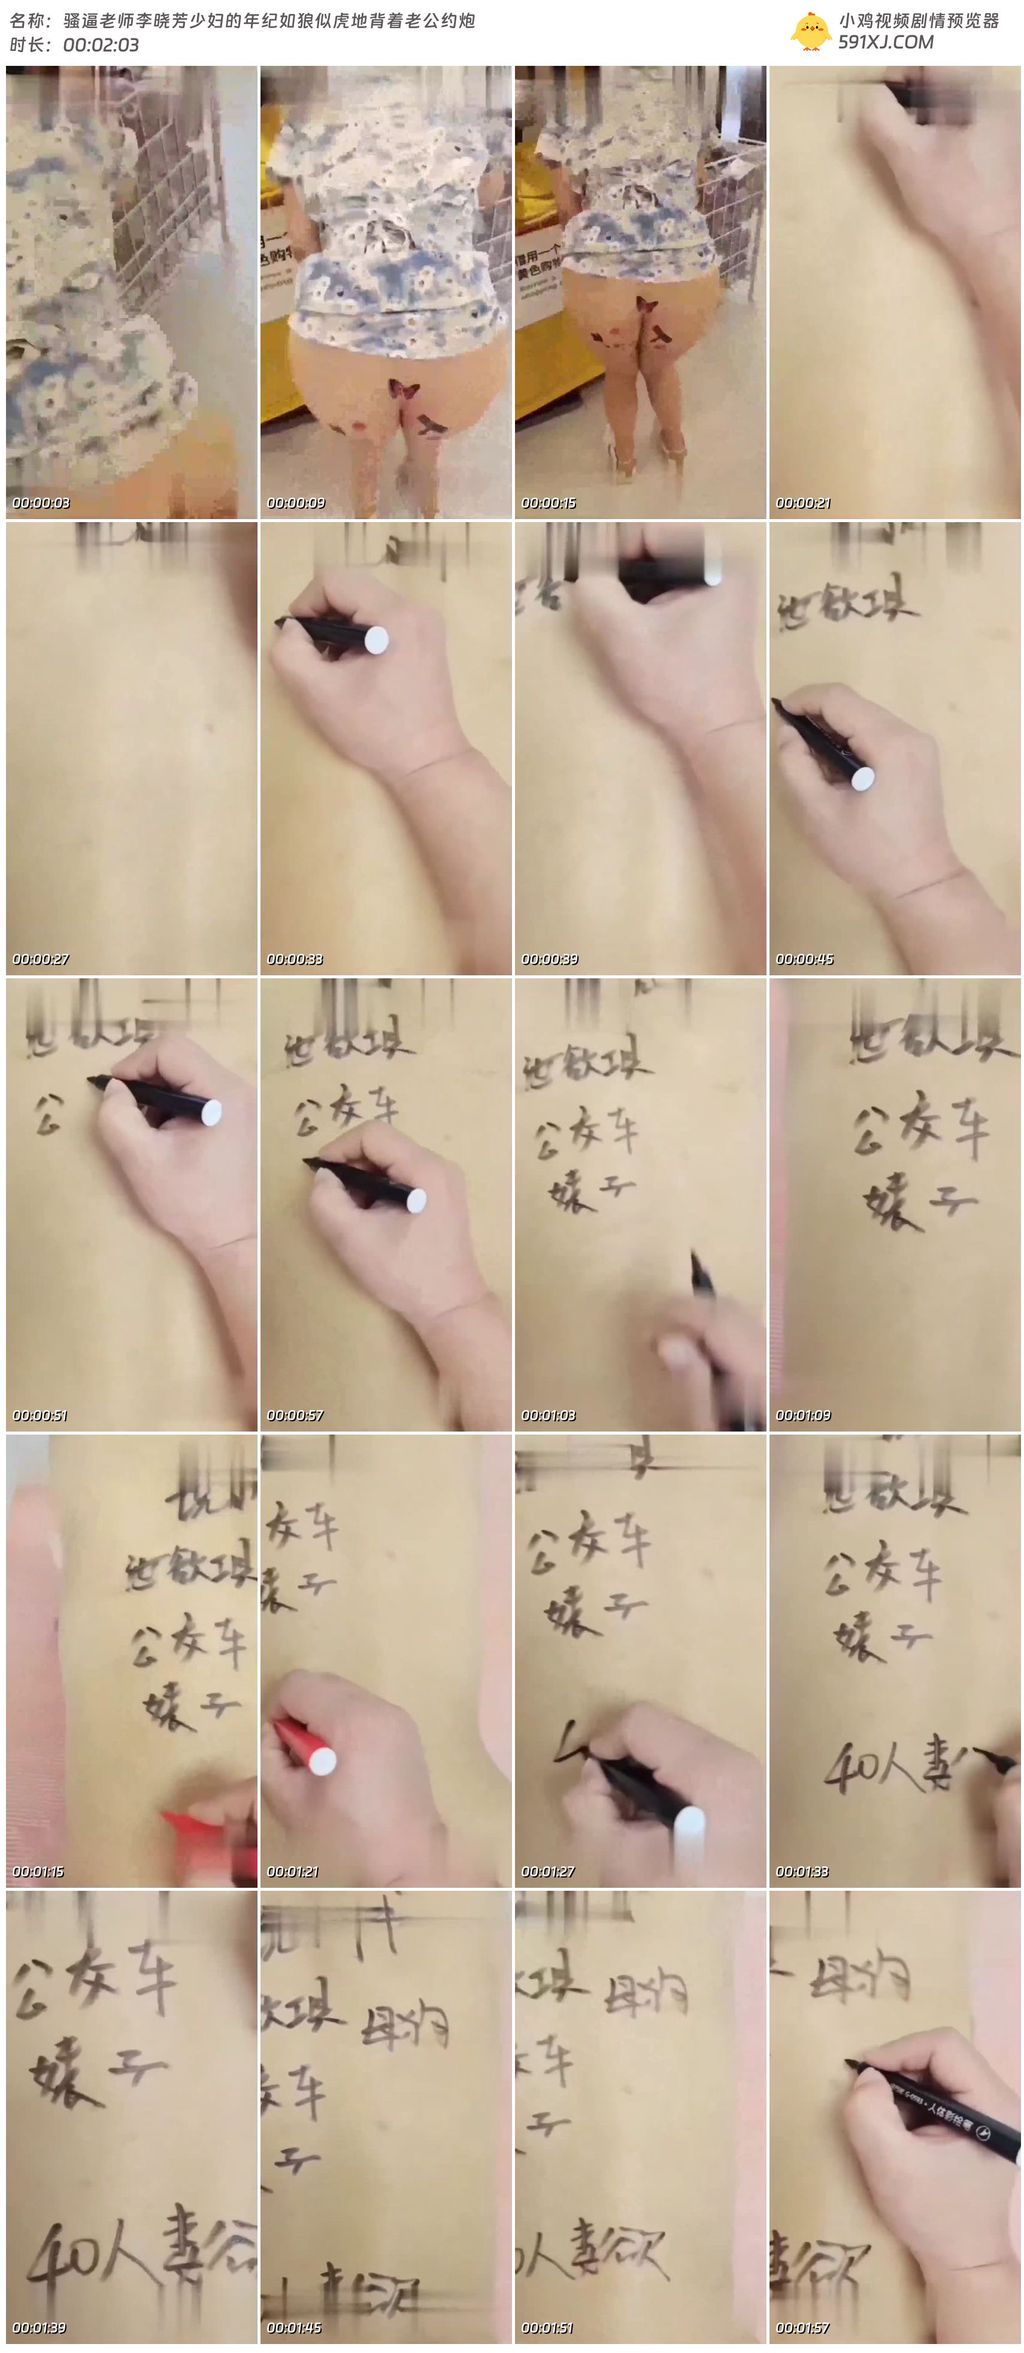 名称：骚逼老师李晓芳少妇的年纪如狼似虎地背着老公约炮
时长：00:02:03
小鸡视频剧情预览器
591XJ.COM
00:00:03
00:00:09
借用一个
黄色购物
00:00:15
00:00:21
00:00:27
00:00:33
00:00:39
00:00:45
公
00:00:51
公交车
00:00:57
公交车
婊子
00:01:03
公交车
婊子
00:01:09
公交车
婊子
00:01:15
交车
子
00:01:21
公交车
婊子
00:01:27
公交车
婊子
40人妻
00:01:33
公交车
婊子
40人妻
00:01:39
母狗
车
子
00:01:45
母狗
车
子
人妻欲
00:01:51
母狗
人体彩绘笔
妻欲
00:01:57